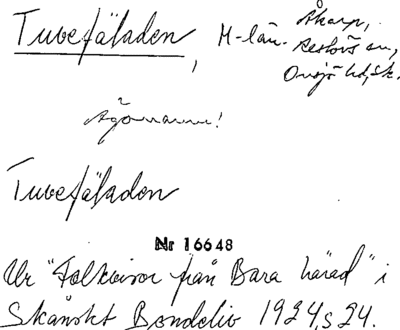 Tuvefäladen, M-län. Åkarp,
Reslövs sn,
Onsjö hd, Sk.
Ägonamn!
Tuvefäladen
Nr 16648
Ur "Folkvisor från Bara härad" i
Skånskt Bondeliv 1924, s 24.